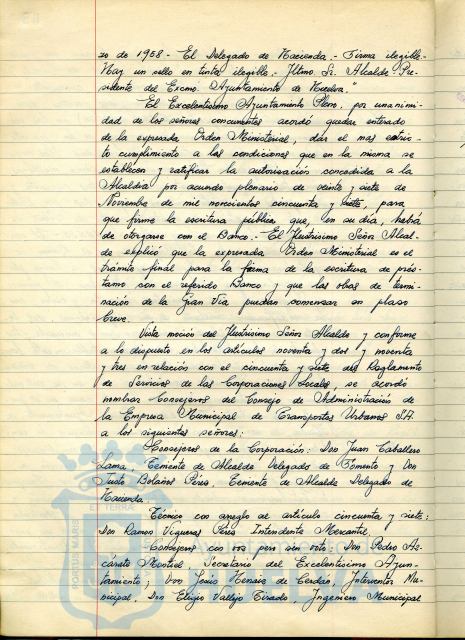 zo de 1958 - El Delegado de Hacienda.- Firma ilegible.-
Hay un sello en tinta ilegible.- Iltmo. Sr. Alcalde-Pre-
sidente del Excmo. Ayuntamiento de Huelva."
El Excelentísimo Ayuntamiento Pleno, por unanimi-
dad de los señores concurrentes acordó quedar enterado
de la expresada Orden Ministerial, dar el mas estric-
to cumplimiento a las condiciones que en la misma se
establecen y ratificar la autorización concedida a la
Alcaldía por acuerdo plenario de veinte y siete de
Noviembre de mil novecientos cincuenta y siete, para
que firme la escritura pública que, en su día, habrá
de otorgarse con el Banco.- El Ilustrísimo Señor Alcal-
de explicó que la expresada Orden Ministerial es el
trámite final para la firma de la escritura de prés-
tamo con el referido Banco y que las obras de termi-
nación de la Gran Vía puedan comenzar en plazo
breve.
Vista moción del Ilustrísimo Señor Alcalde y conforme
a lo dispuesto en los artículos noventa y dos y noventa
y tres en relación con el cincuenta y siete del Reglamento
de Servicios de las Corporaciones Locales, se acordó
nombrar Consejeros del Consejo de Administración de
la Empresa Municipal de Transportes Urbanos S.A.
a los siguientes señores:
Consejeros de la Corporación: Don Juan Caballero
Lama, Teniente de Alcalde Delegado de Fomento y Don
Justo Bolaños Pérez, Teniente de Alcalde Delegado de
Hacienda.
Técnico con arreglo al artículo cincuenta y siete:
Don Ramon Vigueras Peris Intendente Mercantil.
Consejeros con voz pero sin voto: Don Pedro Az-
cárate Montiel, Secretario del Excelentísimo Ayun-
tamiento; Don Jesús Tenaia de Cerdan, Interventor Mu-
nicipal, Don Eligio Vallejo Tirado, Ingeniero Municipal
PORTUS MARIS
ET TERRÆ